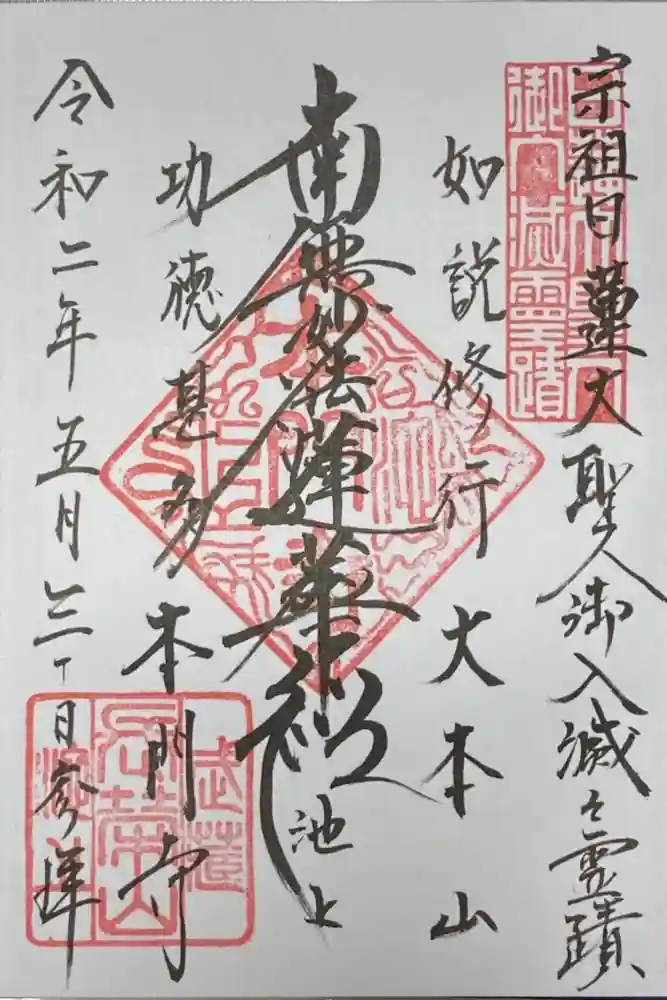 宗祖日蓮大聖人御入滅之霊蹟
御入滅靈蹟
如説修行 大本山
南無妙法蓮華経 池上
功徳甚多 本門寺
武蔵
長榮山
池上
令和二年五月 日参拝